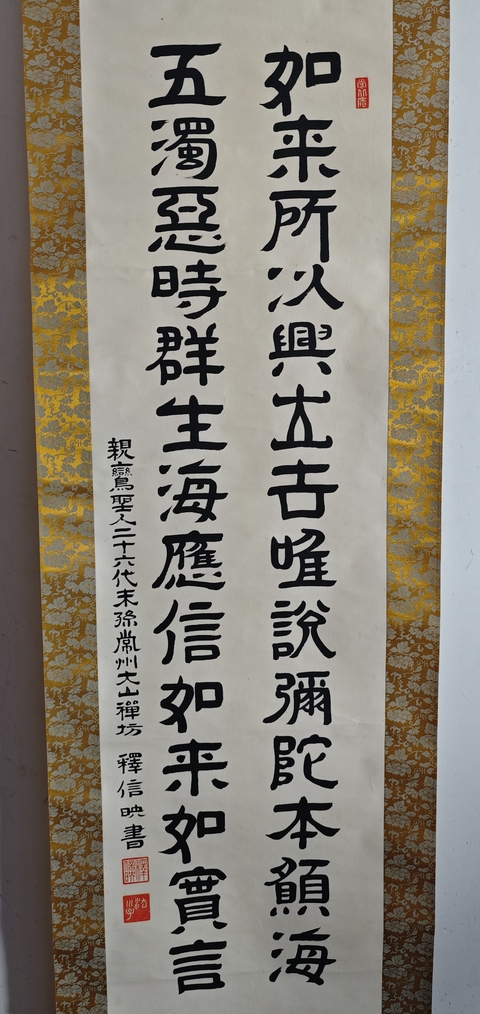 如来所以興出世唯說彌陀本願海
五濁惡時群生海應信如来如實言
親鸞聖人二十六代末孫常州大山禪坊 釋信映書